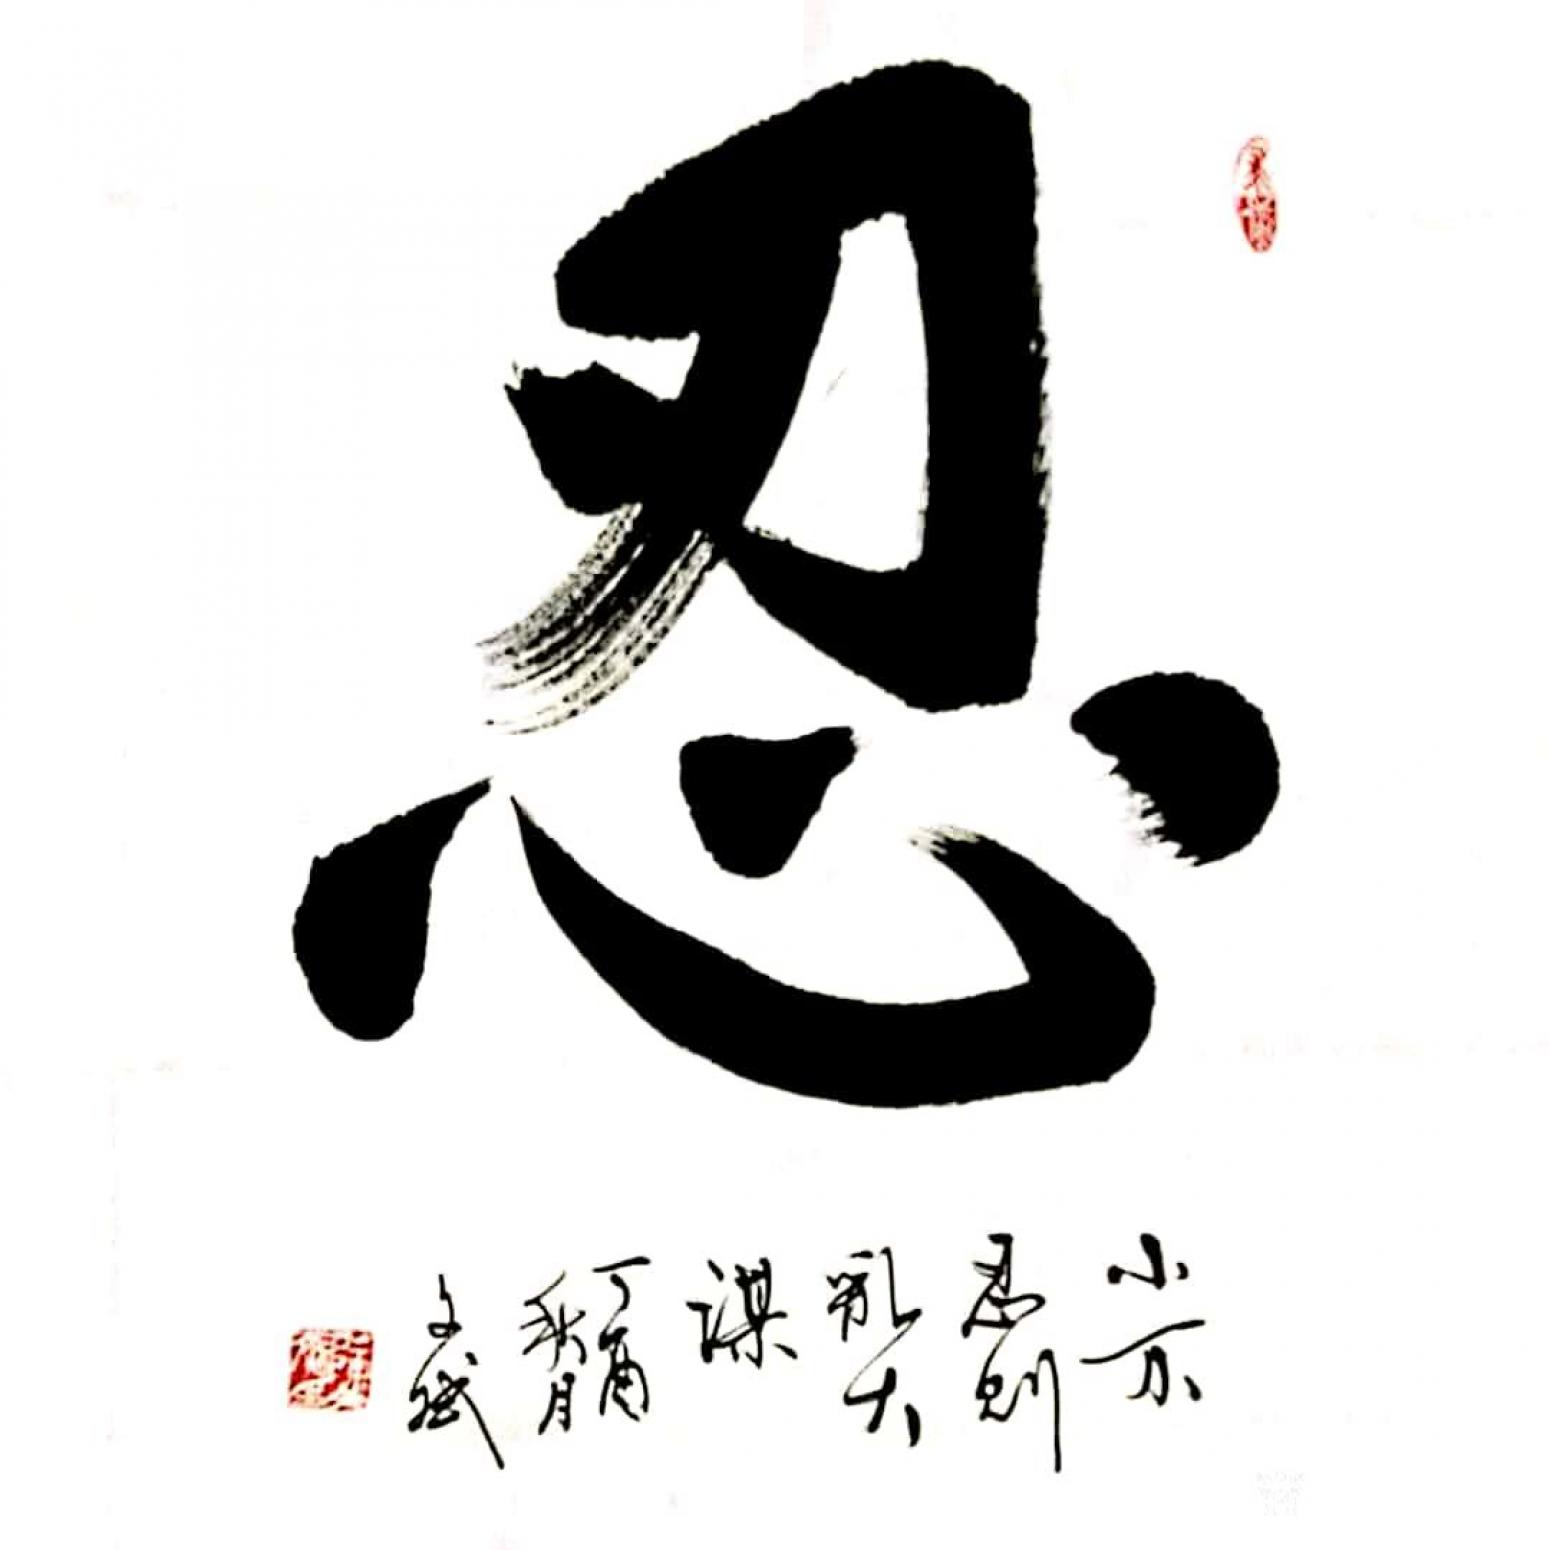 忍
小不
忍则
乱大
谋
丁酉
秋月
文斌